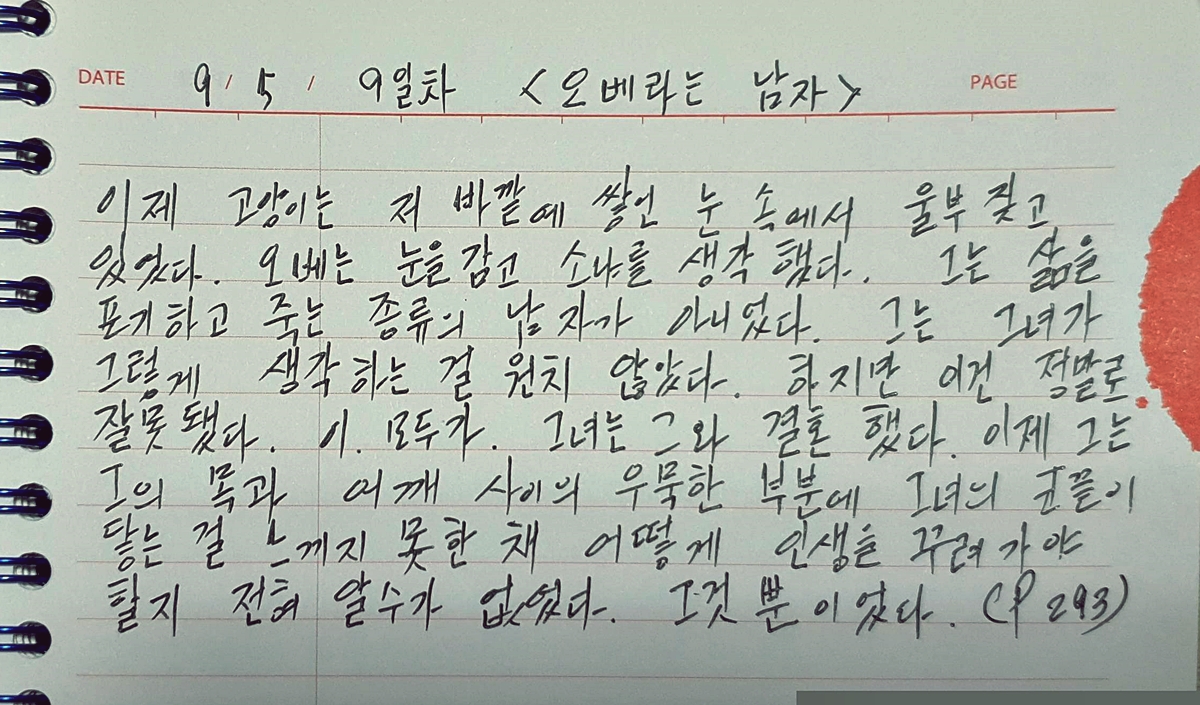 DATE 9 / 5 / 9일차 <오베라는 남자> PAGE
이제 고양이는 저 바깥에 쌓인 눈 속에서 울부짖고
있었다. 오베는 눈을 감고 소냐를 생각했다. 그는 삶을
포기하고 죽는 종류의 남자가 아니었다. 그는 그녀가
그렇게 생각하는 걸 원치 않았다. 하지만 이건 정말로
잘못됐다. 이 모두가. 그녀는 그와 결혼했다. 이제 그는
그의 목과 어깨 사이의 우묵한 부분에 그녀의 코끝이
닿는 걸 느끼지 못한 채 어떻게 인생을 꾸려가야
할지 전혀 알 수가 없었다. 그것뿐이었다. (P 293)